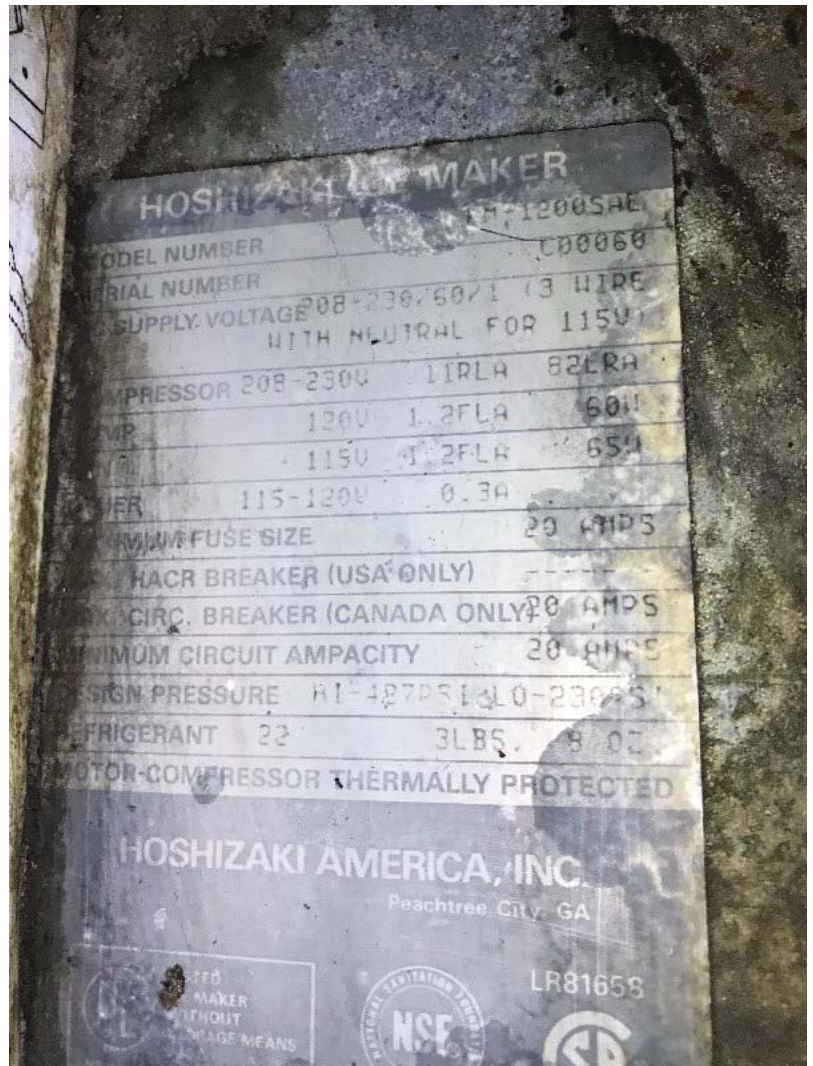 HOSHIZAKI ICE MAKER
MODEL NUMBER -1200SAE
SERIAL NUMBER C00060
SUPPLY VOLTAGE 208-230/60/1 (3 WIRE
WITH NEUTRAL FOR 115V)
COMPRESSOR 208-230V 11RLA 82LRA
120V 1.2FLA 60W
115V 1.2FLA 65W
115-120V 0.3A
FUSE SIZE 20 AMPS
HACR BREAKER (USA ONLY) -----
CIRC. BREAKER (CANADA ONLY) 20 AMPS
MINIMUM CIRCUIT AMPACITY 20 AMPS
DESIGN PRESSURE HI-427PSI LO-230PSI
REFRIGERANT 22 3LBS. 8 OZ.
MOTOR-COMPRESSOR THERMALLY PROTECTED
HOSHIZAKI AMERICA, INC.
Peachtree City, GA
LISTED
ICE MAKER
WITHOUT
STORAGE MEANS
UL
NATIONAL SANITATION FOUNDATION
NSF
LR81658